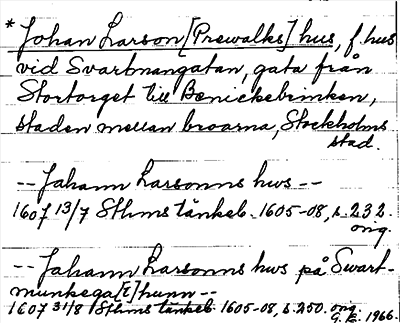 * Johan Larson [Prewalks] hus, f. hus
vid Svartmangatan, gata från
Stortorget till Benickebrinken,
staden mellan broarna, Stockholms
stad.
-- Johann Larsonns hws --
1607 13/7 Sthms tänkeb. 1605-08, s. 232.
orig.
-- Johann Larsonns hws på Swart-
munkega[t]hunn --
1607 31/8 Sthms tänkeb. 1605-08, s. 250. orig.
G. E. 1966.